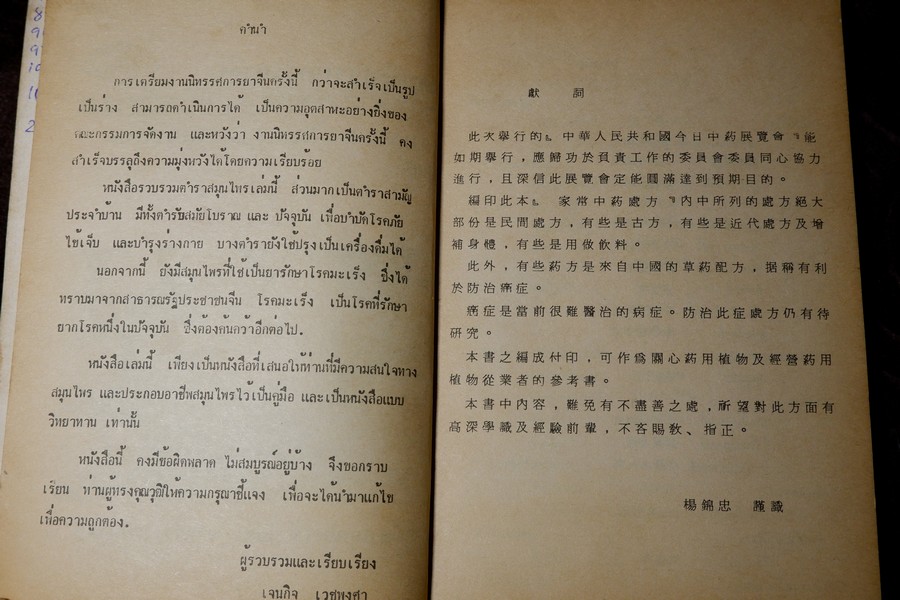 คำนำ
การเตรียมงานนิทรรศการยาจีนครั้งนี้ กว่าจะสำเร็จเป็นรูป
เป็นร่าง สามารถดำเนินการได้ เป็นความอุตสาหะอย่างยิ่งของ
คณะกรรมการจัดงาน และหวังว่า งานนิทรรศการยาจีนครั้งนี้ คง
สำเร็จบรรลุถึงความมุ่งหวังได้โดยความเรียบร้อย
หนังสือรวบรวมตำราสมุนไพรเล่มนี้ ส่วนมากเป็นตำราสามัญ
ประจำบ้าน มีทั้งตำรับสมัยโบราณ และ ปัจจุบัน เพื่อบำบัดโรคภัย
ไข้เจ็บ และบำรุงร่างกาย บางตำรายังใช้ปรุงเป็นเครื่องดื่มได้
นอกจากนี้ ยังมีสมุนไพรที่ใช้เป็นยารักษาโรคมะเร็ง ซึ่งได้
ทราบมาจากสาธารณรัฐประชาชนจีน โรคมะเร็ง เป็นโรคที่รักษา
ยากโรคหนึ่งในปัจจุบัน ซึ่งต้องค้นคว้าอีกต่อไป.
หนังสือเล่มนี้ เพียงเป็นหนังสือที่เสนอให้ท่านที่มีความสนใจทาง
สมุนไพร และประกอบอาชีพสมุนไพรไว้เป็นคู่มือ และเป็นหนังสือแบบ
วิทยาทาน เท่านั้น
หนังสือนี้ คงมีข้อผิดพลาด ไม่สมบูรณ์อยู่บ้าง จึงขอกราบ
เรียน ท่านผู้ทรงคุณวุฒิให้ความกรุณาชี้แจง เพื่อจะได้นำมาแก้ไข
เพื่อความถูกต้อง.
ผู้รวบรวมและเรียบเรียง
เจนกิจ เวชพงศา
獻 詞
此次舉行的』中華人民共和國今日中药展覽會『能
如期舉行，應歸功於負責工作的委員會委員同心協力
進行，且深信此展覽會定能圓滿達到預期目的。
編印此本』 家常中药處方 『內中所列的處方絕大
部份是民間處方，有些是古方，有些是近代處方及增
補身體，有些是用做飲料。
此外，有些药方是來自中國的草药配方，据稱有利
於防治癌症。
癌症是當前很難醫治的病症。防治此症處方仍有待
研究。
本書之編成付印，可作爲關心药用植物及經營药用
植物從業者的參考書。
本書中內容，難免有不盡善之處，祈望對此方面有
高深學識及經驗前輩，不吝賜敎、指正。
楊錦忠 謹識